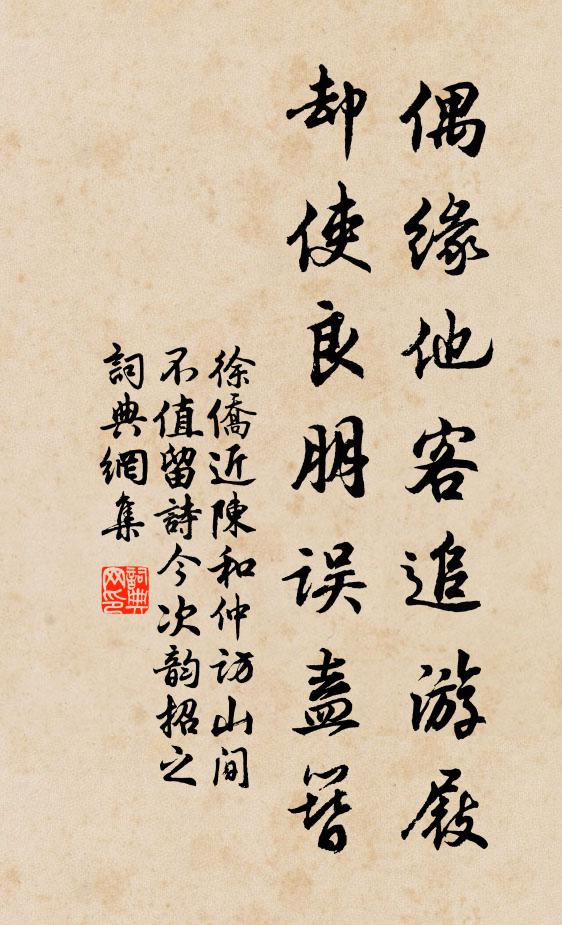 偶缘他客追游屐
却使良朋误盍簪
徐僑近陳和仲访山间
不值留詩今次韵招之
詞典網集
詞典
网印